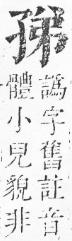 譌字舊註音
體小兒貌非